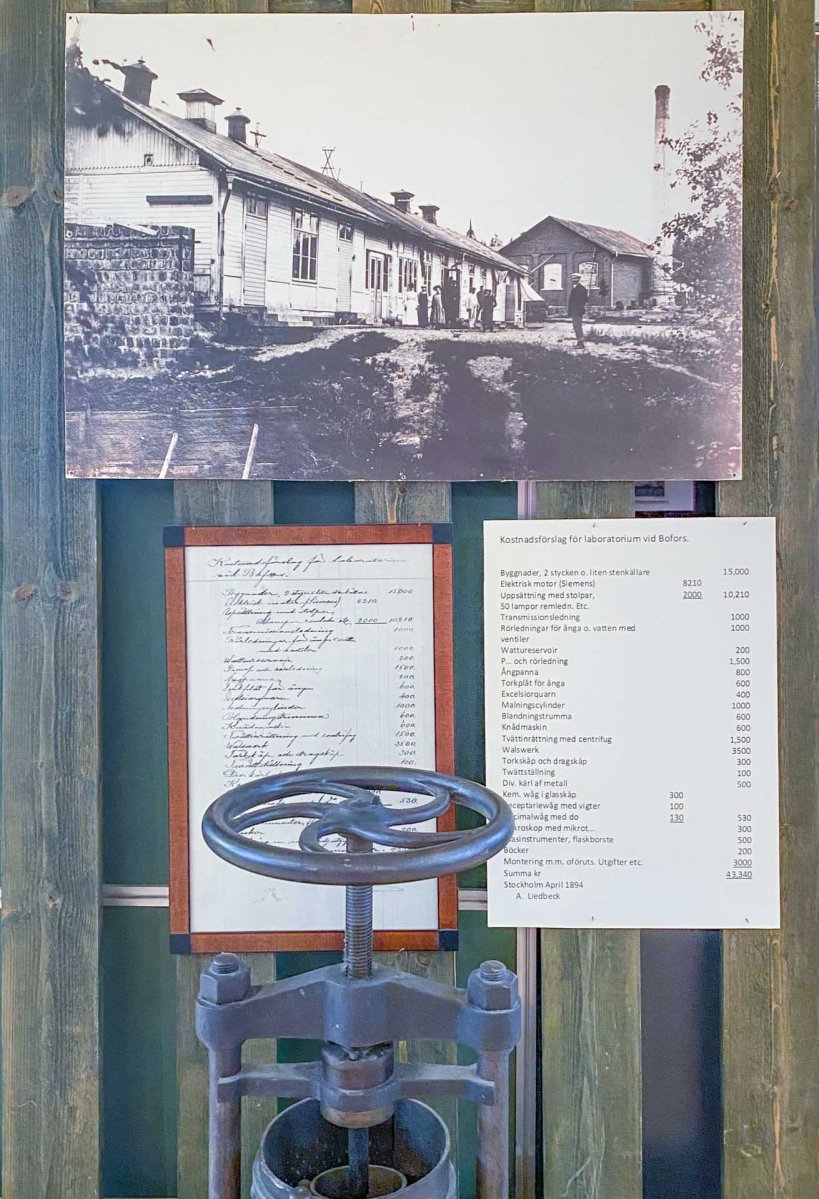 Kostnadsförslag för laboratorium
vid Bofors.
Byggnader, 2 stycken o. liten stenkällare 15,000
Elektrisk motor (Siemens) 8210.
Uppsättning med stolpar,
lampor remledn. etc. 2000 10,210.
Transmissionsledning 1000
Rörledningar för ånga o. vatten
med ventiler 1000.
Wattureservoir 200.
och rörledning 1500.
Ångpanna 800
Torkplåt för ånga 600.
Excelsiorquarn 400
Malningscylinder 1000
Blandningstrumma 600
Knådmaskin 600.
Tvättinrättning med centrifug 1500
Walswerk 3500
Torkskåp och dragskåp 300.
Twättställning 100.
Div. kärl
530.
200
Kostnadsförslag för laboratorium vid Bofors.
Byggnader, 2 stycken o. liten stenkällare 15,000
Elektrisk motor (Siemens) 8210
Uppsättning med stolpar, 2000 10,210
50 lampor remledn. Etc.
Transmissionsledning 1000
Rörledningar för ånga o. vatten med 1000
ventiler
Wattureservoir 200
P... och rörledning 1,500
Ångpanna 800
Torkplåt för ånga 600
Excelsiorquarn 400
Malningscylinder 1000
Blandningstrumma 600
Knådmaskin 600
Tvättinrättning med centrifug 1,500
Walswerk 3500
Torkskåp och dragskåp 300
Twättställning 100
Div. kärl af metall 500
Kem. wåg i glasskåp 300
eceptariewåg med vigter 100
cimalwåg med do 130 530
kroskop med mikrot... 300
asinstrumenter, flaskborste 500
Böcker 200
Montering m.m. oföruts. Utgifter etc. 3000
Summa kr 43,340
Stockholm April 1894
A. Liedbeck